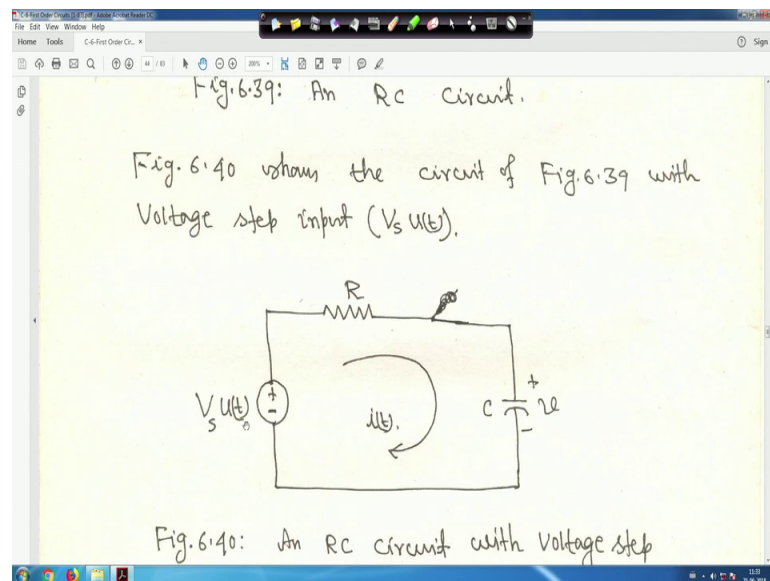 C-6-First Order Circuits (1-83).pdf - Adobe Acrobat Reader DC
File Edit View Window Help
Home Tools C-6-First Order Cir... × Sign
44 / 83 200%
Fig.6.39: An RC Circuit.
Fig. 6.40 shows the circuit of Fig.6.39 with
Voltage step input (Vs U(t)).
R
Vs U(t) + - i(t). C + v -
Fig.6.40: An RC circuit with Voltage step
11:33